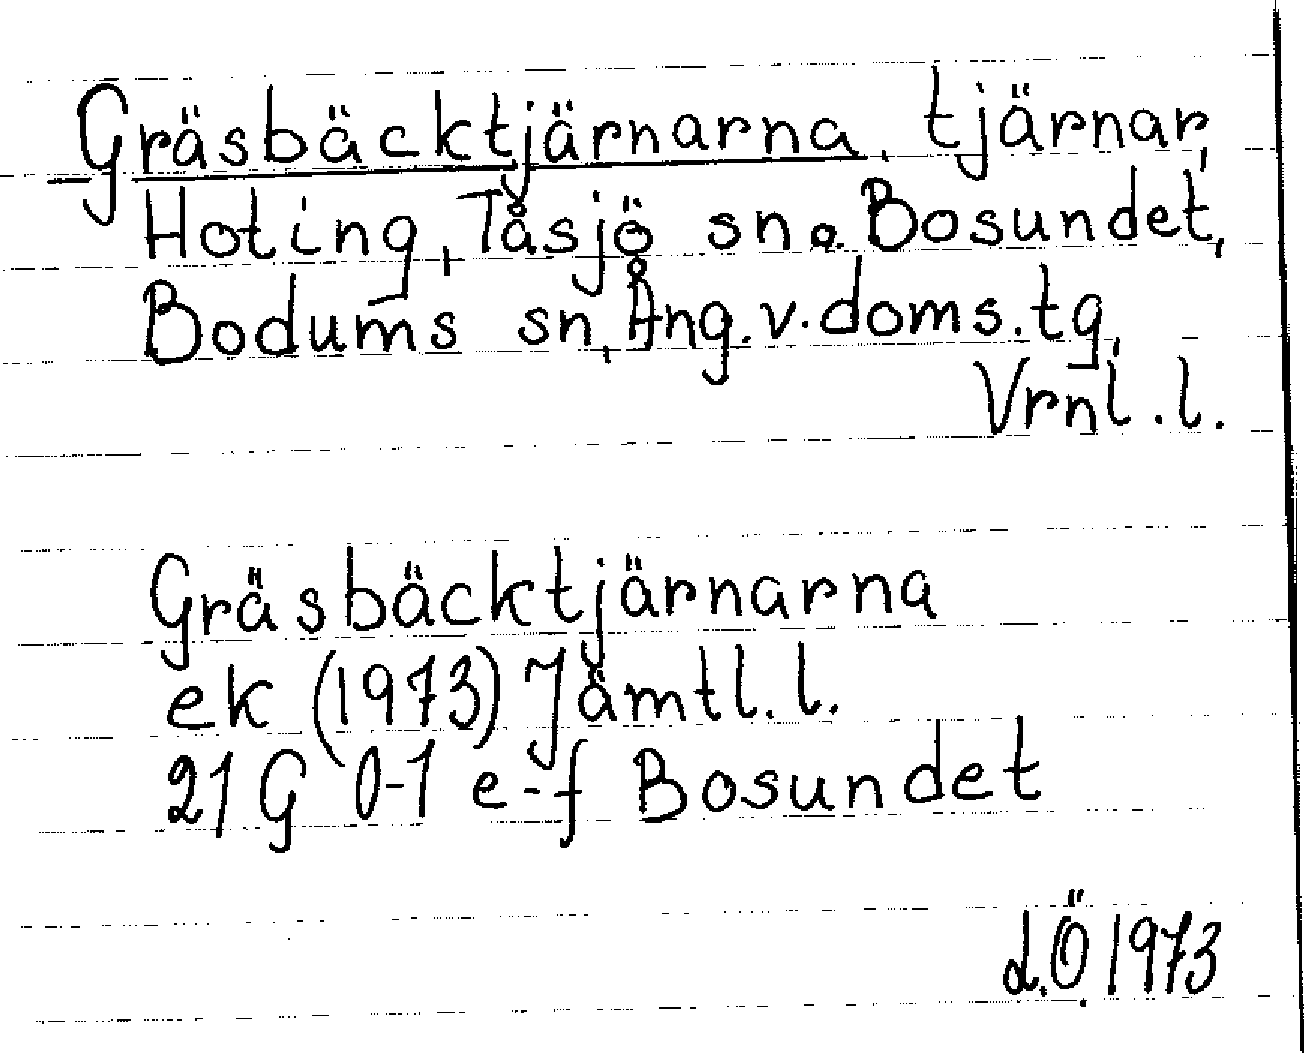 Gräsbäcktjärnarna, tjärnar,
Hoting, Tåsjö sn o. Bosundet,
Bodums sn, Ång. v. doms. tg,
Vrnl. l.
Gräsbäcktjärnarna
ek (1973) Jämtl. l.
21 G 0-1 e-f Bosundet
L.Ö. 1973